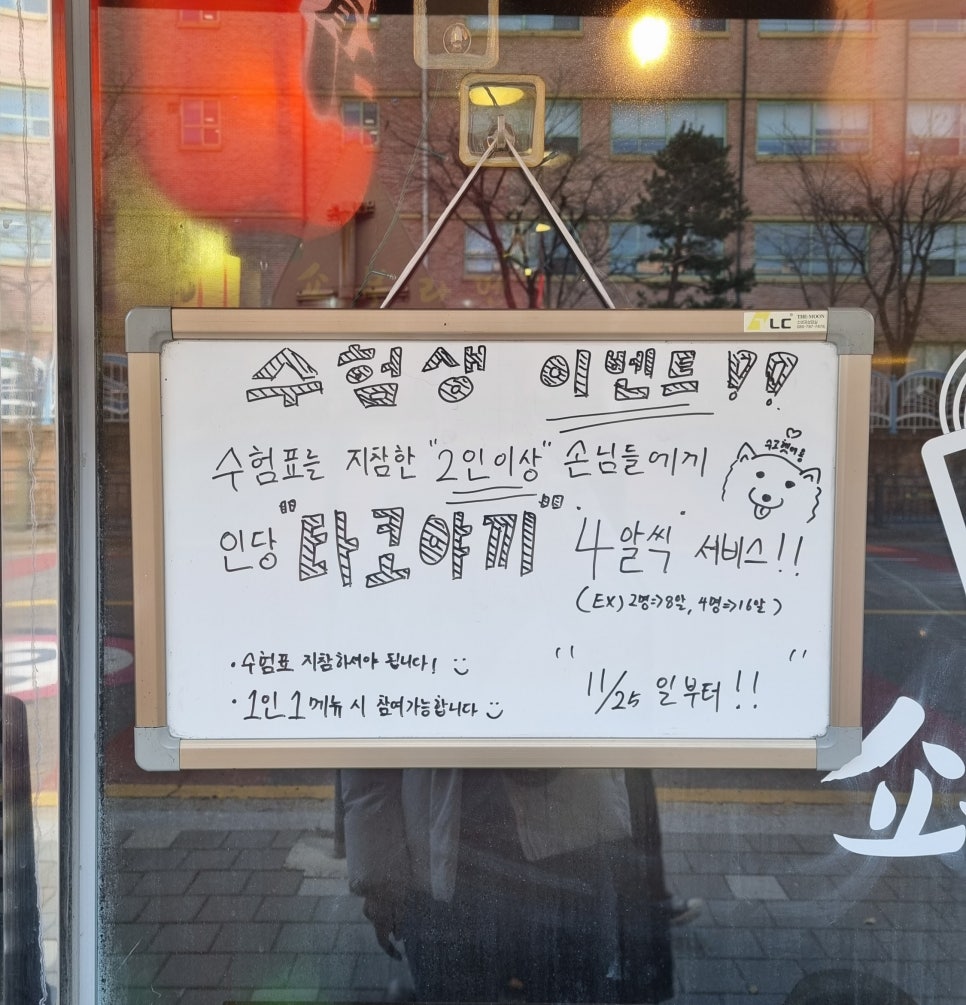 LC THE MOON
수험생 이벤트!!
수험표는 지참한 "2인이상" 손님들에게
수고했어!
인당 "타코야끼" 4알씩 서비스!!
(EX) 2명=>8알, 4명=>16알)
·수험표 지참하셔야 됩니다!
·1인 1메뉴 시 참여가능합니다
"11/25일부터!!"
쇼